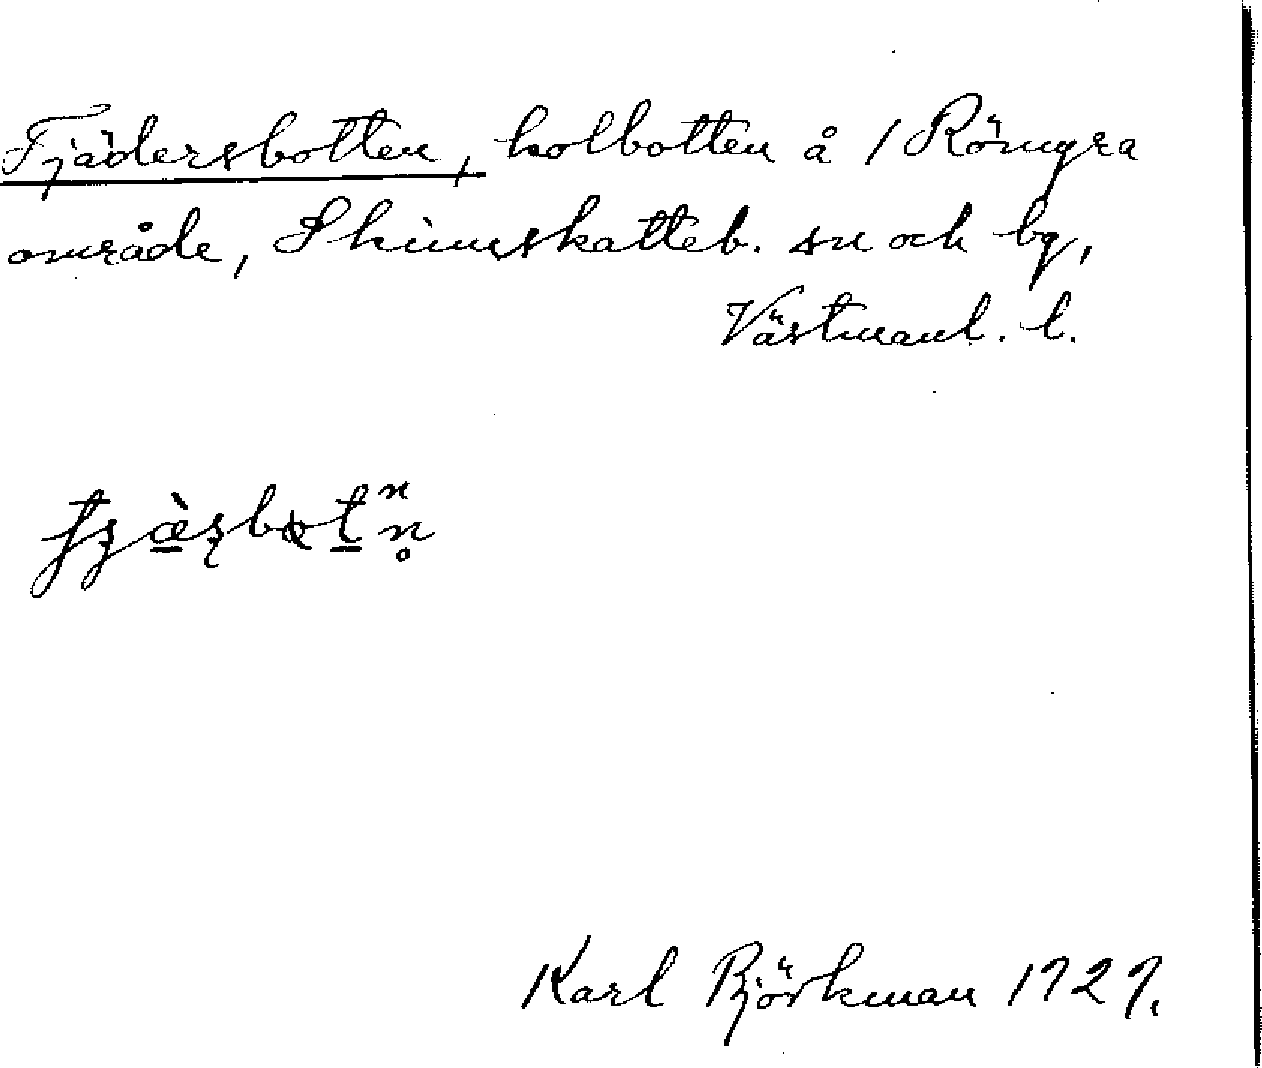 Fjädersbotten, kolbotten å / Römyra
område, Skinnskatteb. sn och bg,
Västmanl. l.
Karl Björkman 1929.